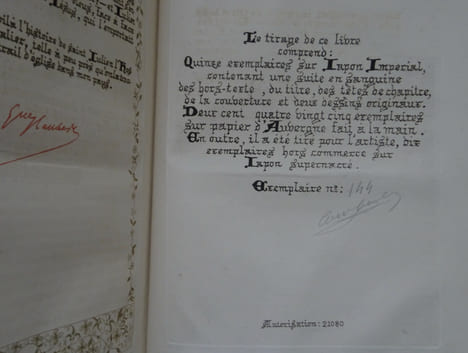 Voilà l'histoire de saint Julien l'Hos
telle à peu près qu'on la trouve
vitrail d'église dans mon pays.
Le tirage de ce livre
comprend:
Quinze exemplaires sur Japon Imperial,
contenant une suite en sanguine
des hors-texte, du titre, des têtes de chapitre,
de la couverture et deux dessins originaux.
Deux cent quatre vingt cinq exemplaires
sur papier d'Auvergne fait à la main.
En outre, il a été tiré pour l'artiste, dix
exemplaires hors commerce sur
Japon supernacré.
Exemplaire nº: 144
Autorisation: 21080